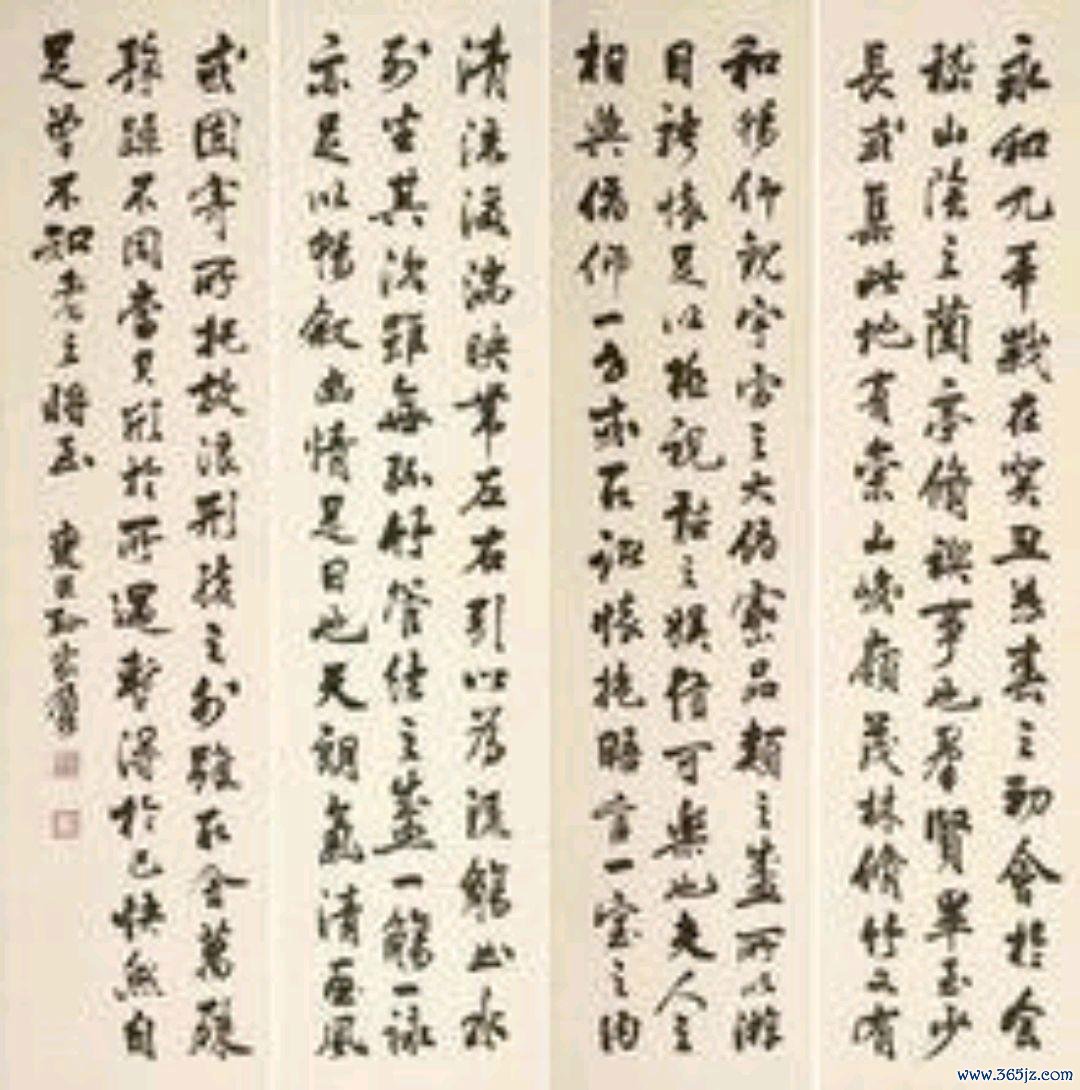 永和九年歲在癸丑暮春之初會於會
稽山陰之蘭亭脩禊事也羣賢畢至少
長咸集此地有崇山峻嶺茂林脩竹又有
和暢仰觀宇宙之大俯察品類之盛所以遊
目騁懷足以極視聽之娛信可樂也夫人之
相與俯仰一世或取諸懷抱晤言一室之內
清流激湍映帶左右引以為流觴曲水
列坐其次雖無絲竹管絃之盛一觴一詠
亦足以暢敘幽情是日也天朗氣清惠風
或因寄所託放浪形骸之外雖取舍萬殊
靜躁不同當其欣於所遇暫得於己快然自
足曾不知老之將至 燮臣孫家鼐
www.365jz.com